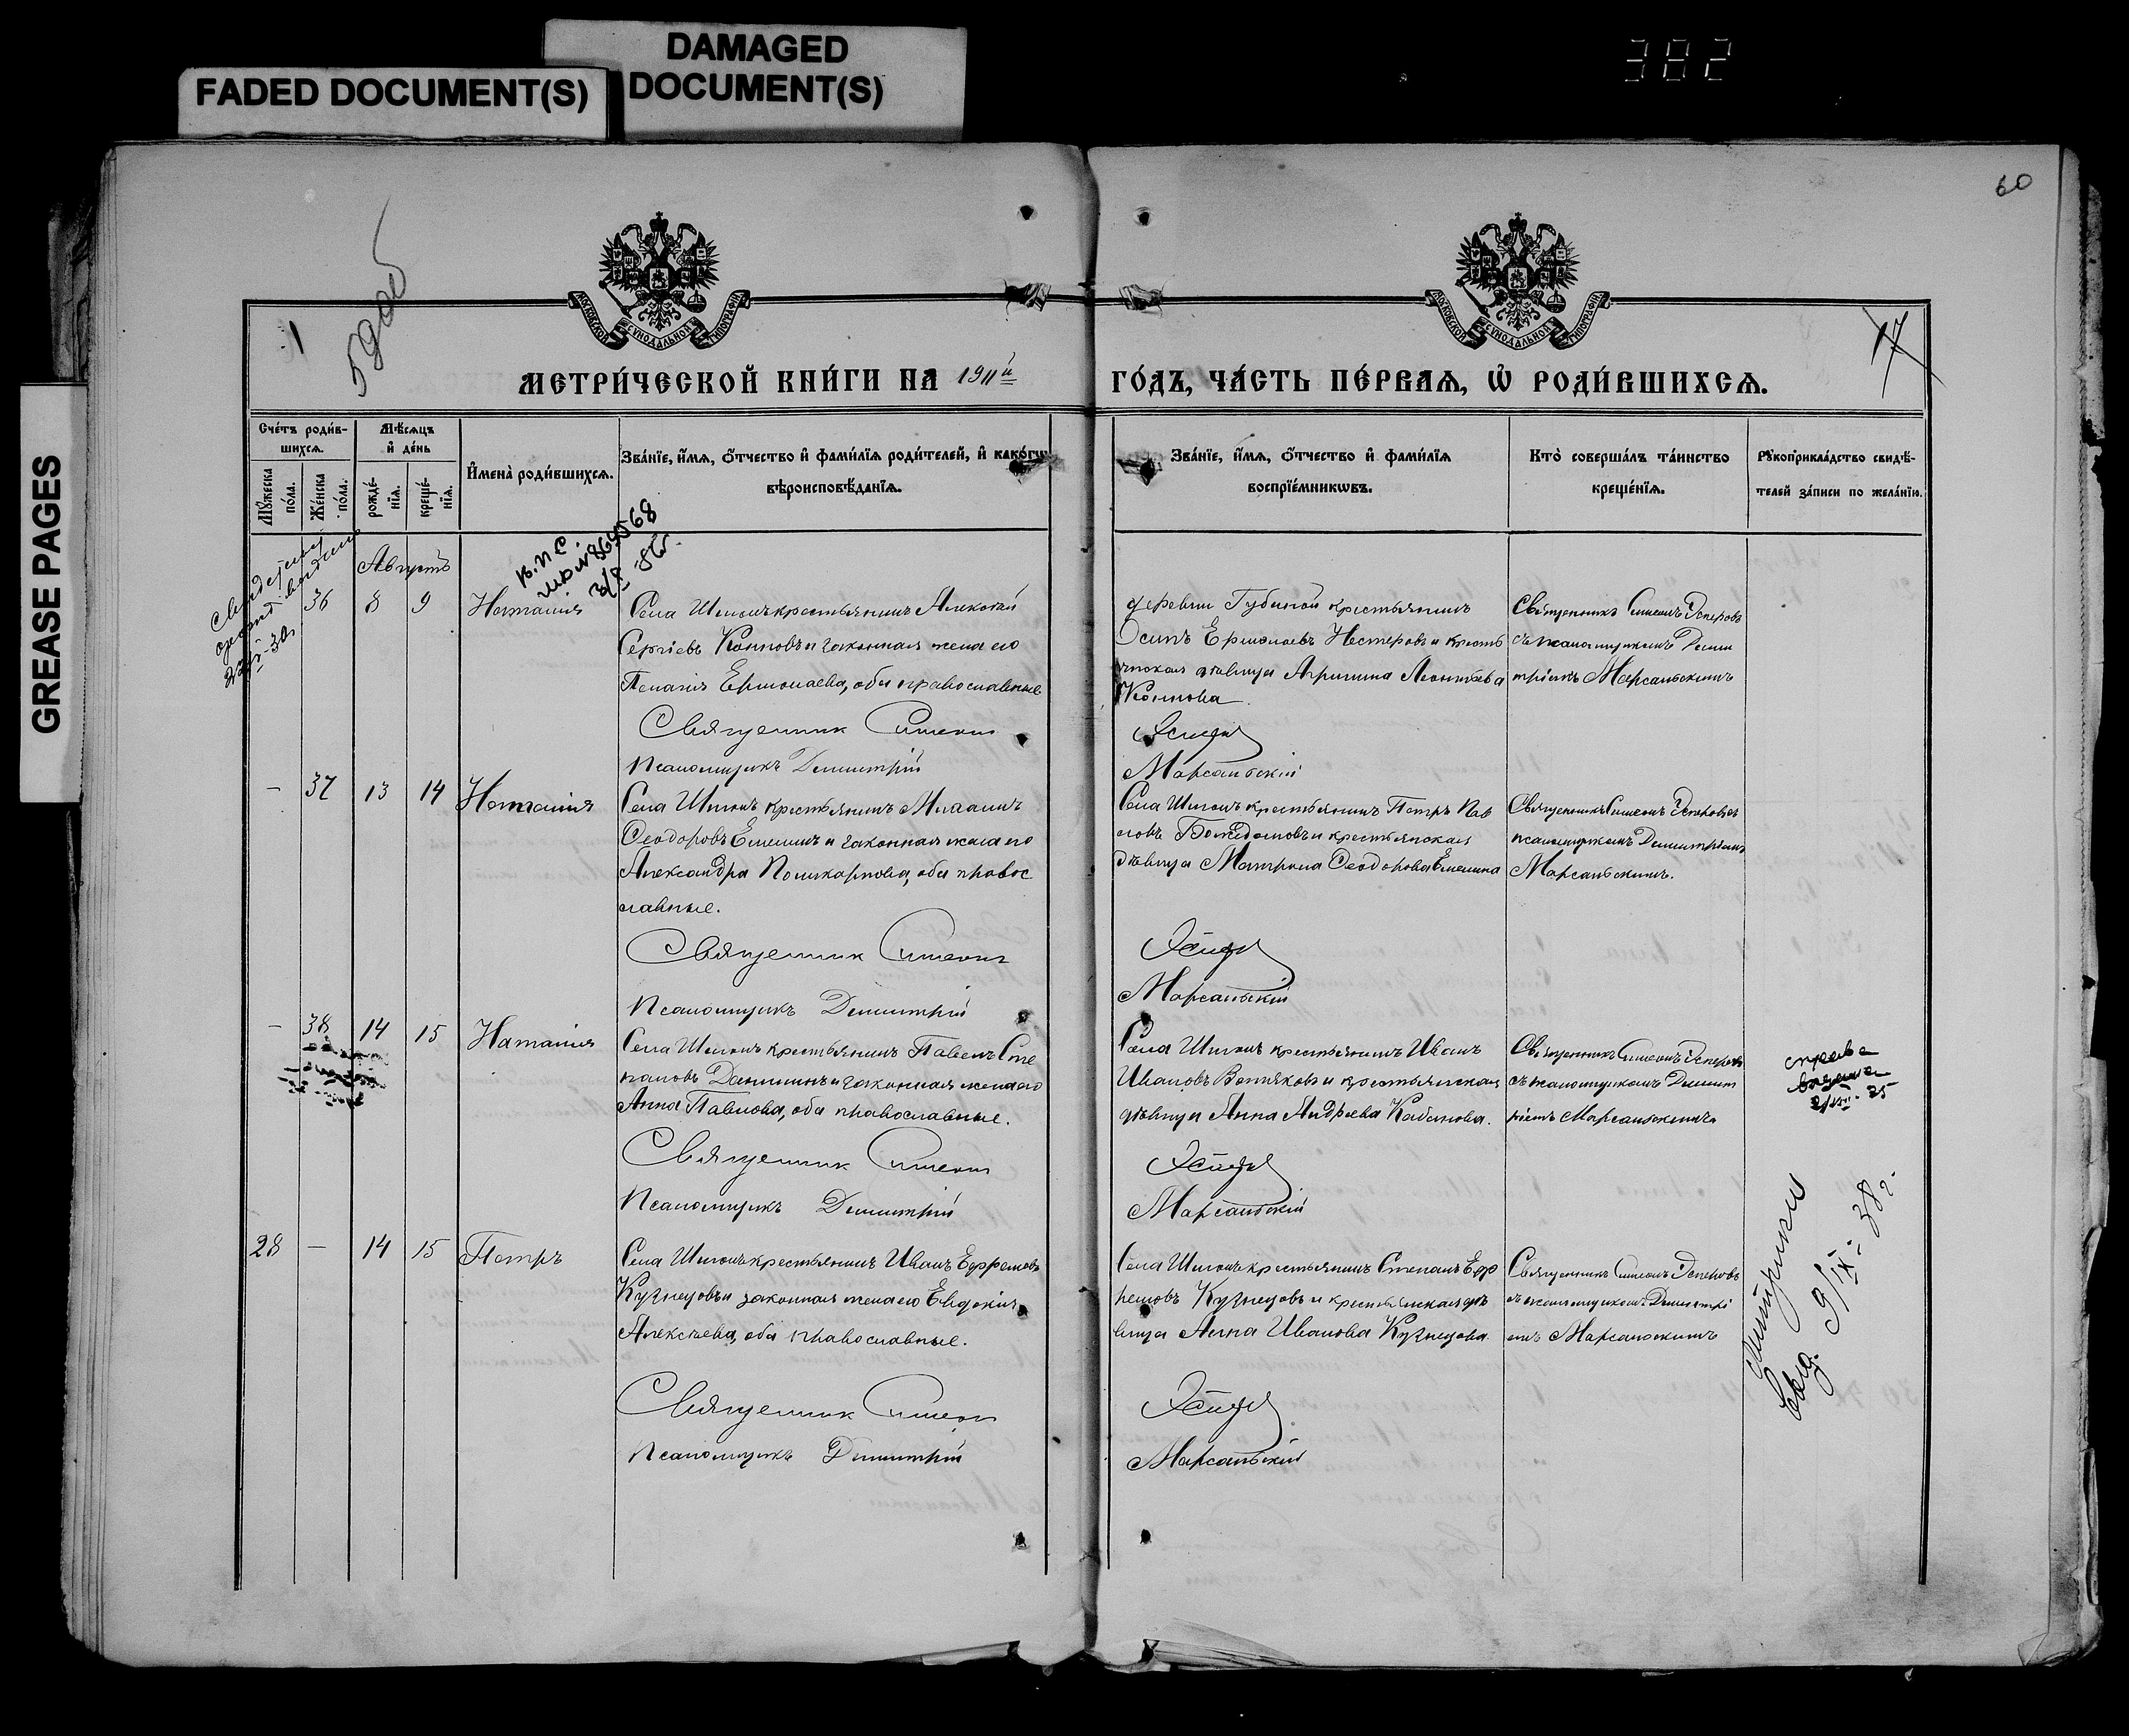 DAMAGED
DOCUMENT(S)
FADED DOCUMENT(S)
GREASE PAGES
382
60
1
17
МОСКОВСКОЙ СѴНОДАЛЬНОЙ ТИПОГРАФІИ
МОСКОВСКОЙ СѴНОДАЛЬНОЙ ТИПОГРАФІИ
МЕТРИ́ЧЕСКОЙ КНИ́ГИ НА 1911й
ГО́ДЪ, ЧА́СТЬ ПЕ́РВАѦ, Ѡ҆ РОДИ́ВШИХСѦ.
Сче́тъ роди́в-
шихсѧ.
Мꙋ́жеска
по́ла.
Же́нска
по́ла.
Мѣ́сѧцъ
и҆ де́нь
рожде́-
нїѧ.
креще́-
нїѧ.
И҆мена̀ роди́вшихсѧ.
Зва́нїе, и҆́мѧ, ѻ҆́тчество и҆ фами́лїѧ роди́телей, и҆ како́гѡ
вѣроисповѣ́данїѧ.
Зва́нїе, и҆́мѧ, ѻ҆́тчество и҆ фами́лїѧ
воспрїе́мникѡвъ.
Кто̀ соверша́лъ та́инство
креще́нїѧ.
Рꙋкоприкла́дство свидѣ́-
телей за́писи по жела́нїю.
Августъ
36 8 9 Наталія
Села крестьянинъ Алексѣй
Сергіевъ Конновъ и законная жена его
Пелагія Ермолаева, оба православные
Священник Симеон
Псаломщикъ Димитрій
деревни Губиной крестьянинъ
Осипъ Ермолаевъ Нестеровъ и кресть
янская дѣвица Агрипина Леонтьева
Коннова.
Марсальскій
Священникъ Симеонъ
съ псаломщикомъ Дими
тріемъ Марсальскимъ
- 37 13 14 Наталія
Села крестьянинъ Михаилъ
Ѳеодоровъ Емелинъ и законная жена его
Александра Поликарпова, оба правос
лавные.
Священник Симеон
Псаломщикъ Димитрій
Села крестьянинъ Петръ Пав
ловъ Божедомовъ и крестьянская
дѣвица Матрона Ѳеодорова Емелина
Марсальскій
Священникъ Симеонъ
псаломщикомъ Димитріемъ
Марсальскимъ.
- 38 14 15 Наталія
Села крестьянинъ Павелъ Сте
пановъ Данилинъ и законная жена его
Анна Павлова, оба православные.
Священник Симеон
Псаломщикъ Димитрій
Села крестьянинъ Иванъ
Ивановъ Вотяковъ и крестьянская
дѣвица Анна Андреева Кабанова.
Марсальскій
Священникъ Симеонъ
съ псаломщикомъ Димит
ріемъ Марсальскимъ
справка
28 - 14 15 Петръ
Села крестьянинъ Иванъ Ефремовъ
Кузнецовъ и законная жена его Евдокія
Алексѣева, оба православные.
Священник Симеон
Псаломщикъ Димитрій
Села крестьянинъ Степанъ Еф
ремовъ Кузнецовъ и крестьянская дѣ
вица Анна Иванова Кузнецова.
Марсальскій
Священникъ Симеонъ
съ псаломщикомъ Димитрі
емъ Марсальскимъ
9/IX-38г.